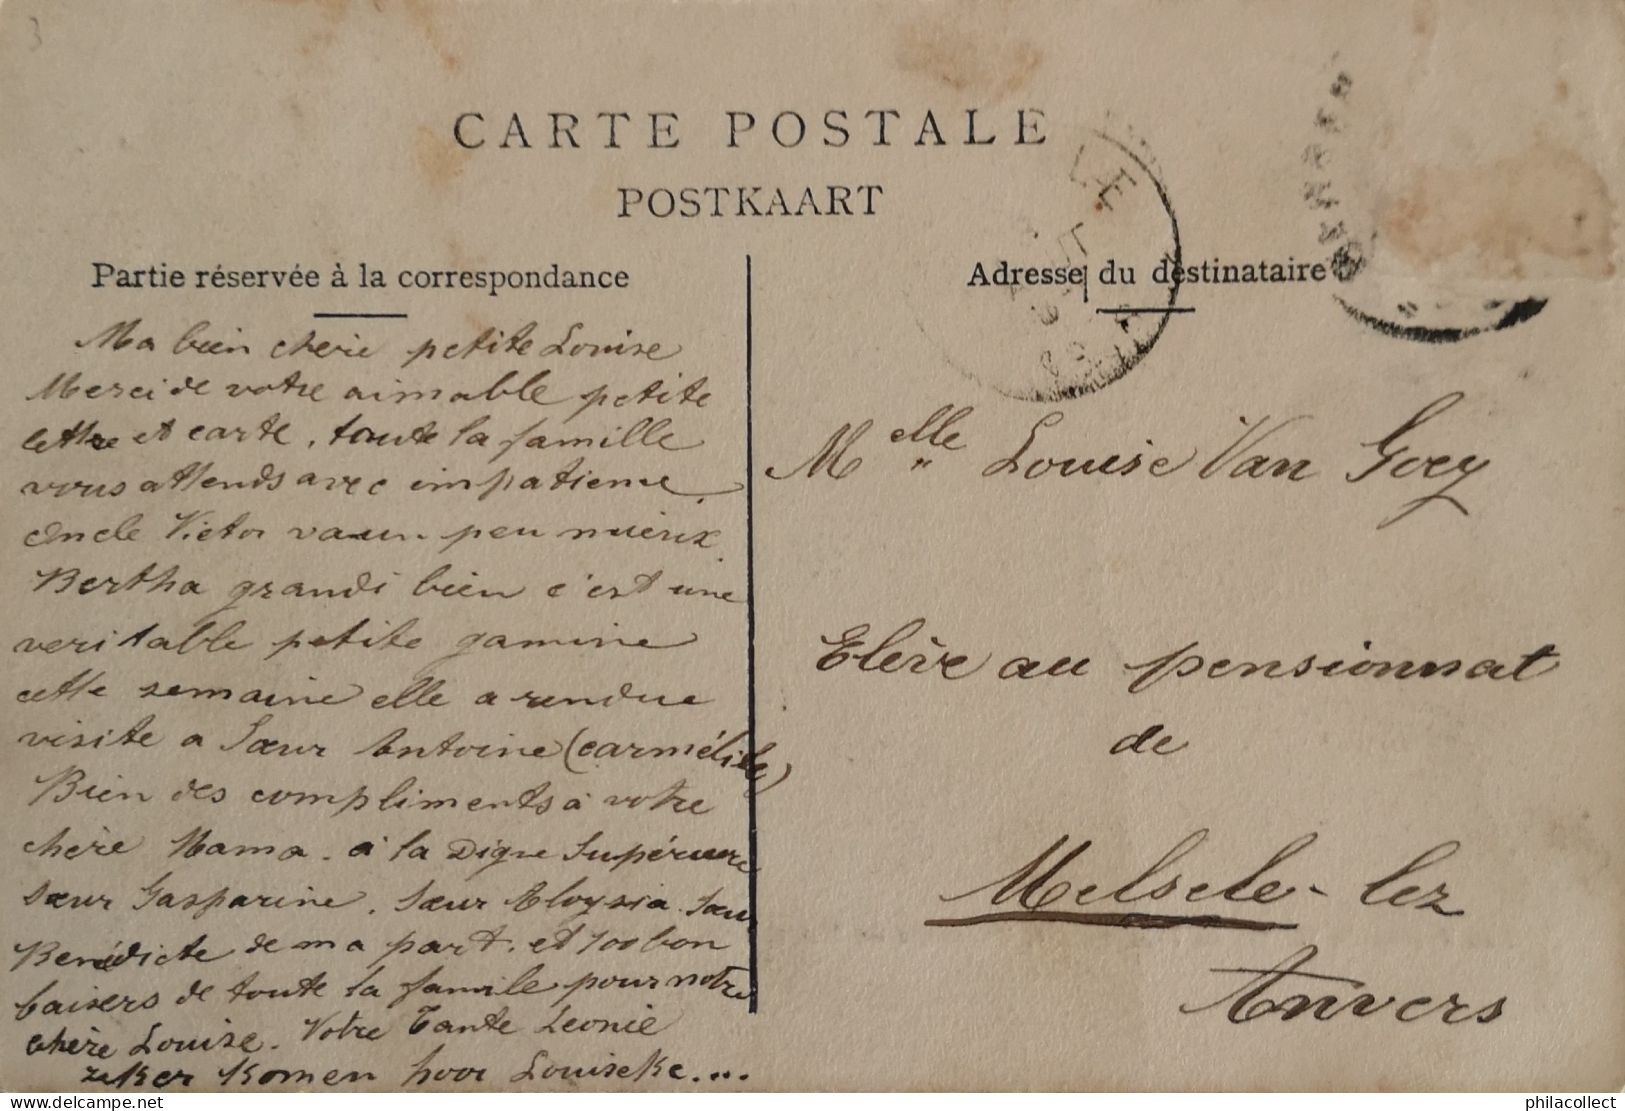 3
CARTE POSTALE
POSTKAART
Partie réservée à la correspondance
Ma bien cherie petite Louise
Merci de votre aimable petite
lettre et carte, toute la famille
vous attends avec impatience.
Oncle Victor va un peu mieux.
Bertha grandi bien c'est une
veritable petite gamine
cette semaine elle a rendue
visite a Sœur Antoine (carmélite)
Bien des compliments à votre
chère Mama. à la Digne Supérieure
Sœur Gasparine, Sœur Aloysia Sœur
Benédicte de ma part. et 100 bon
baisers de toute la famile pour notre
chère Louise. Votre Tante Leonie
zeker komen hoor Louiseke....
Adresse du destinataire
Melle Louise Van Goey
Elève au pensionnat
de
Melsele-lez
Anvers
delcampe.net
philacollect